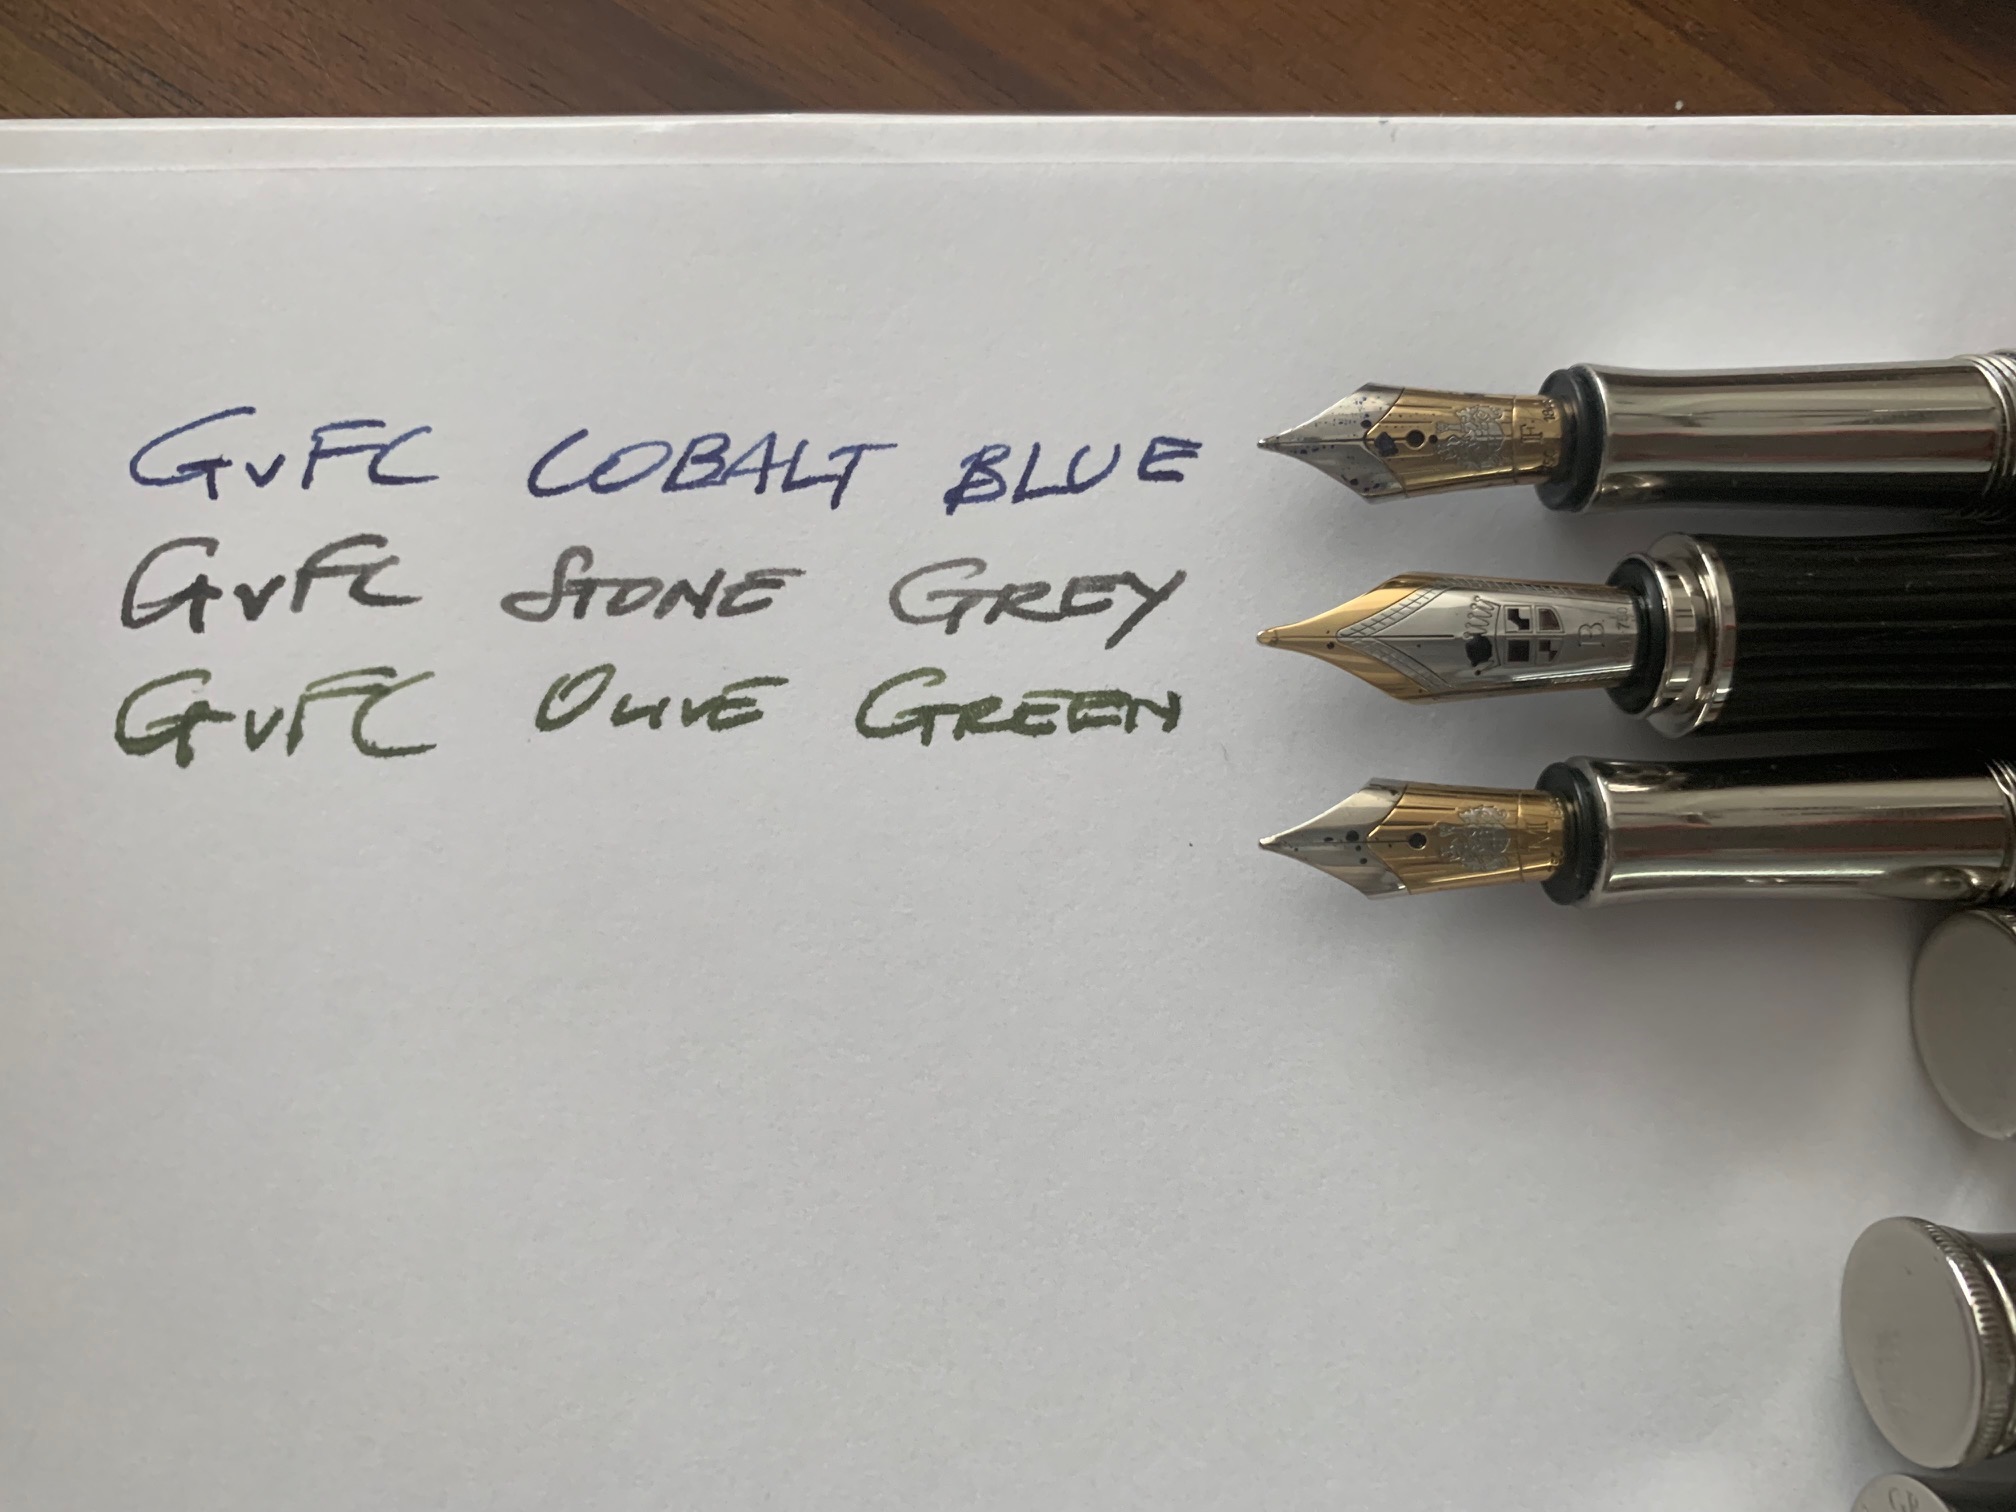 GvFC COBALT BLUE
GvFC STONE GREY
GvFC OLIVE GREEN
F
B
M